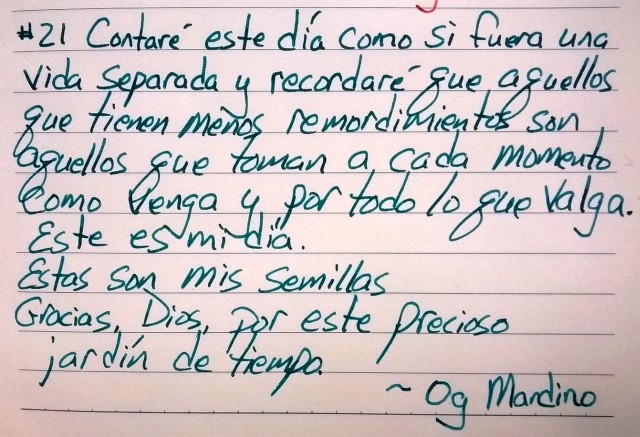 #21 Contaré este día como si fuera una
vida separada y recordaré que aquellos
que tienen meños remordimientos son
aquellos que toman a cada momento
como venga y por todo lo que valga.
Este es mi día.
Estas son mis semillas
Gracias, Dios, por este precioso
jardín de tiempo.
~ Og Mandino